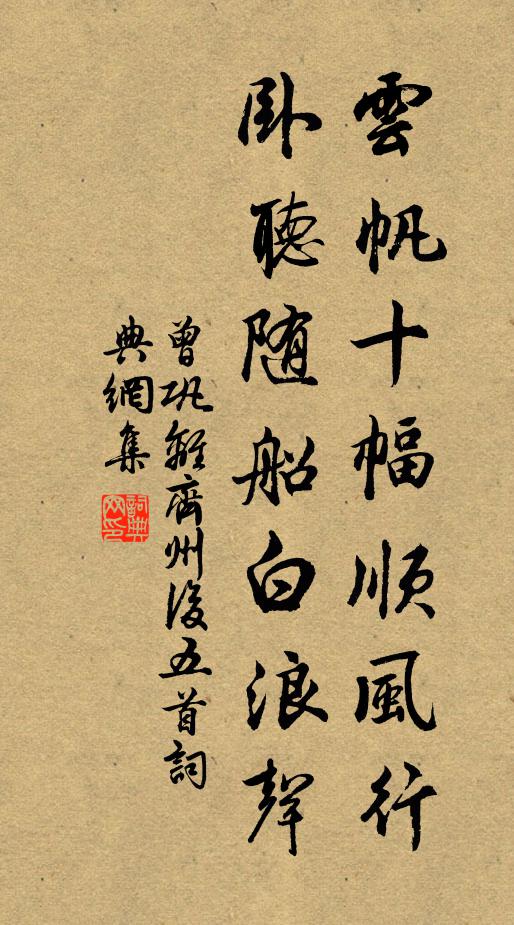 雲帆十幅順風行
卧聽随船白浪聲
曾巩離齊州後五首詞
典網集
詞典
网印